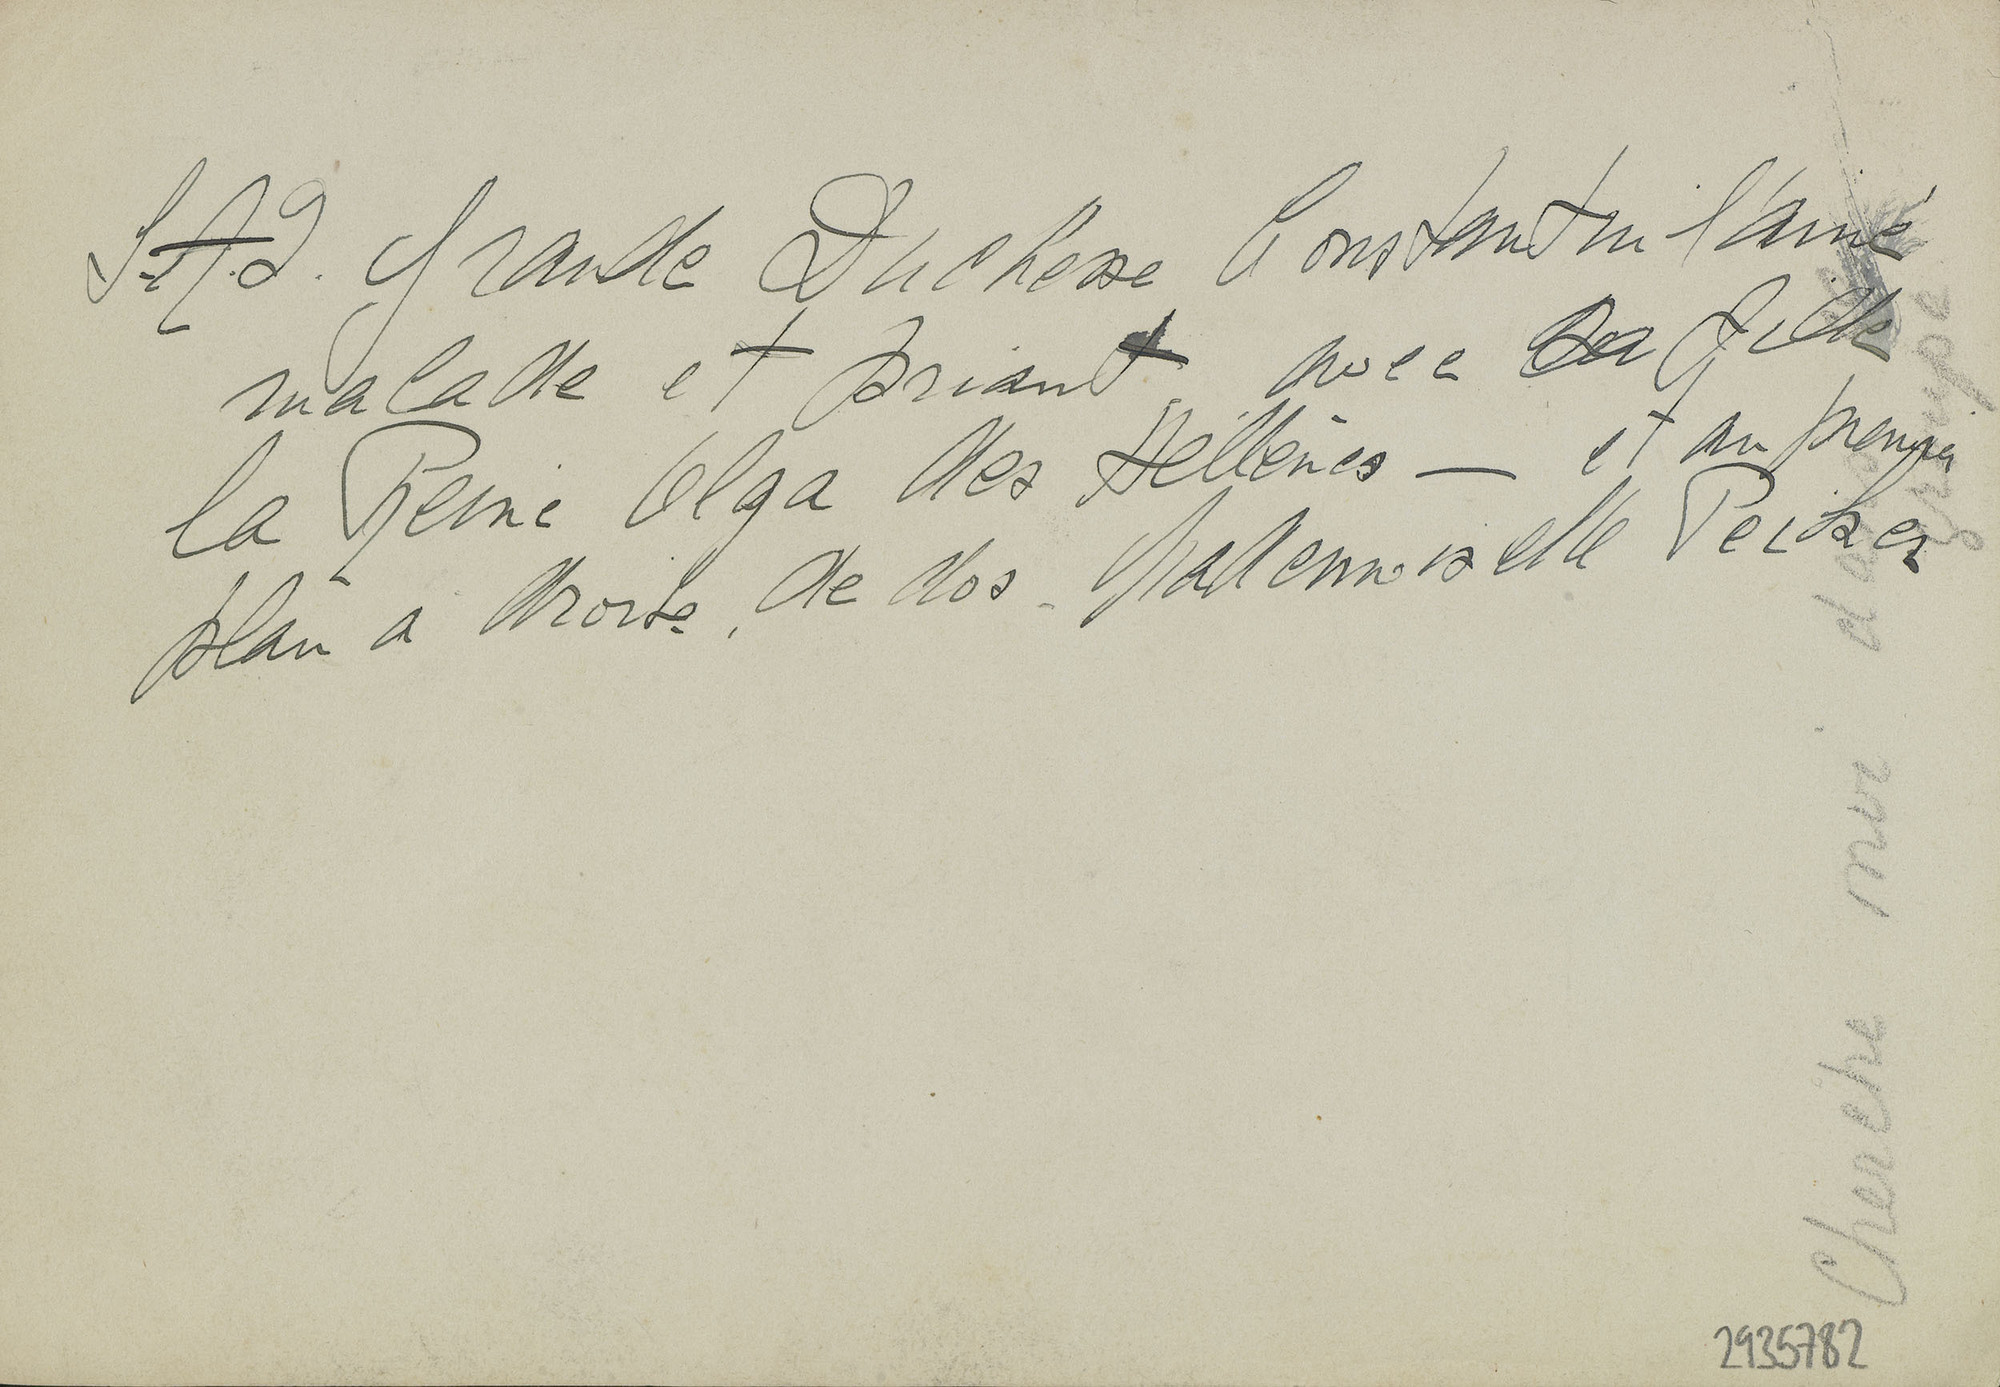 S.A.I. Grande Duchesse Constantin l'ainé
malade et priant avec sa fille
la Reine Olga des Hellènes — et au premier
plan a droite, de dos. Mademoiselle Peiker
Cherche moi dans le
groupe
2935782